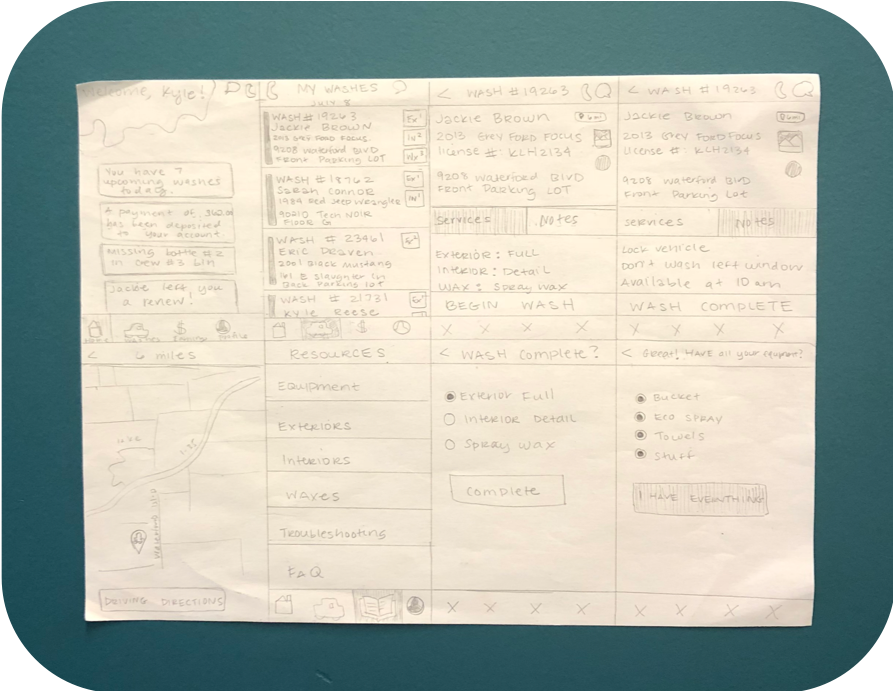 Welcome, Kyle!
You have 7
upcoming washes
today.
A payment of
has been deposited
to your account.
Missing bottle #2
in crew #3 bin
Jackie left you
a review!
MY WASHES
July 8
WASH # 19263
JACKIE BROWN
2013 GREY FORD FOCUS
9208 Waterford BLVD
Front Parking LOT
WASH # 18762
Sarah Connor
1984 Red Jeep Wrangler
90210 Tech NOIR
FLOOR G
WASH # 23461
ERIC DRAVEN
2001 Black Mustang
101 E Slaughter Ln
Back Parking Lot
WASH # 21731
KYLE REESE
< WASH # 19263
JACKIE BROWN
6mi
2013 GREY FORD FOCUS
license #: KLH2134
9208 Waterford BLVD
FRONT Parking LOT
Services
Notes
EXTERIOR: FULL
INTERIOR: Detail
WAX: Spray Wax
BEGIN WASH
X X X X
< WASH # 19263
Jackie Brown
6mi
2013 GREY FORD FOCUS
License #: KLH2134
9208 Waterford BLVD
Front Parking Lot
services
Notes
Lock vehicle
Don't wash left window
Available at 10 am
WASH COMPLETE
X X X
< 6 miles
I-35
DRIVING DIRECTIONS
RESOURCES
Equipment
EXTERIORS
INTERIORS
WAXES
Troubleshooting
FAQ
< WASH Complete?
Exterior Full
Interior Detail
Spray Wax
Complete
X X X X
< Great! HAVE all your equipment?
Bucket
Eco SPRAY
Towels
Stuff
I HAVE EVERYTHING
X X X X